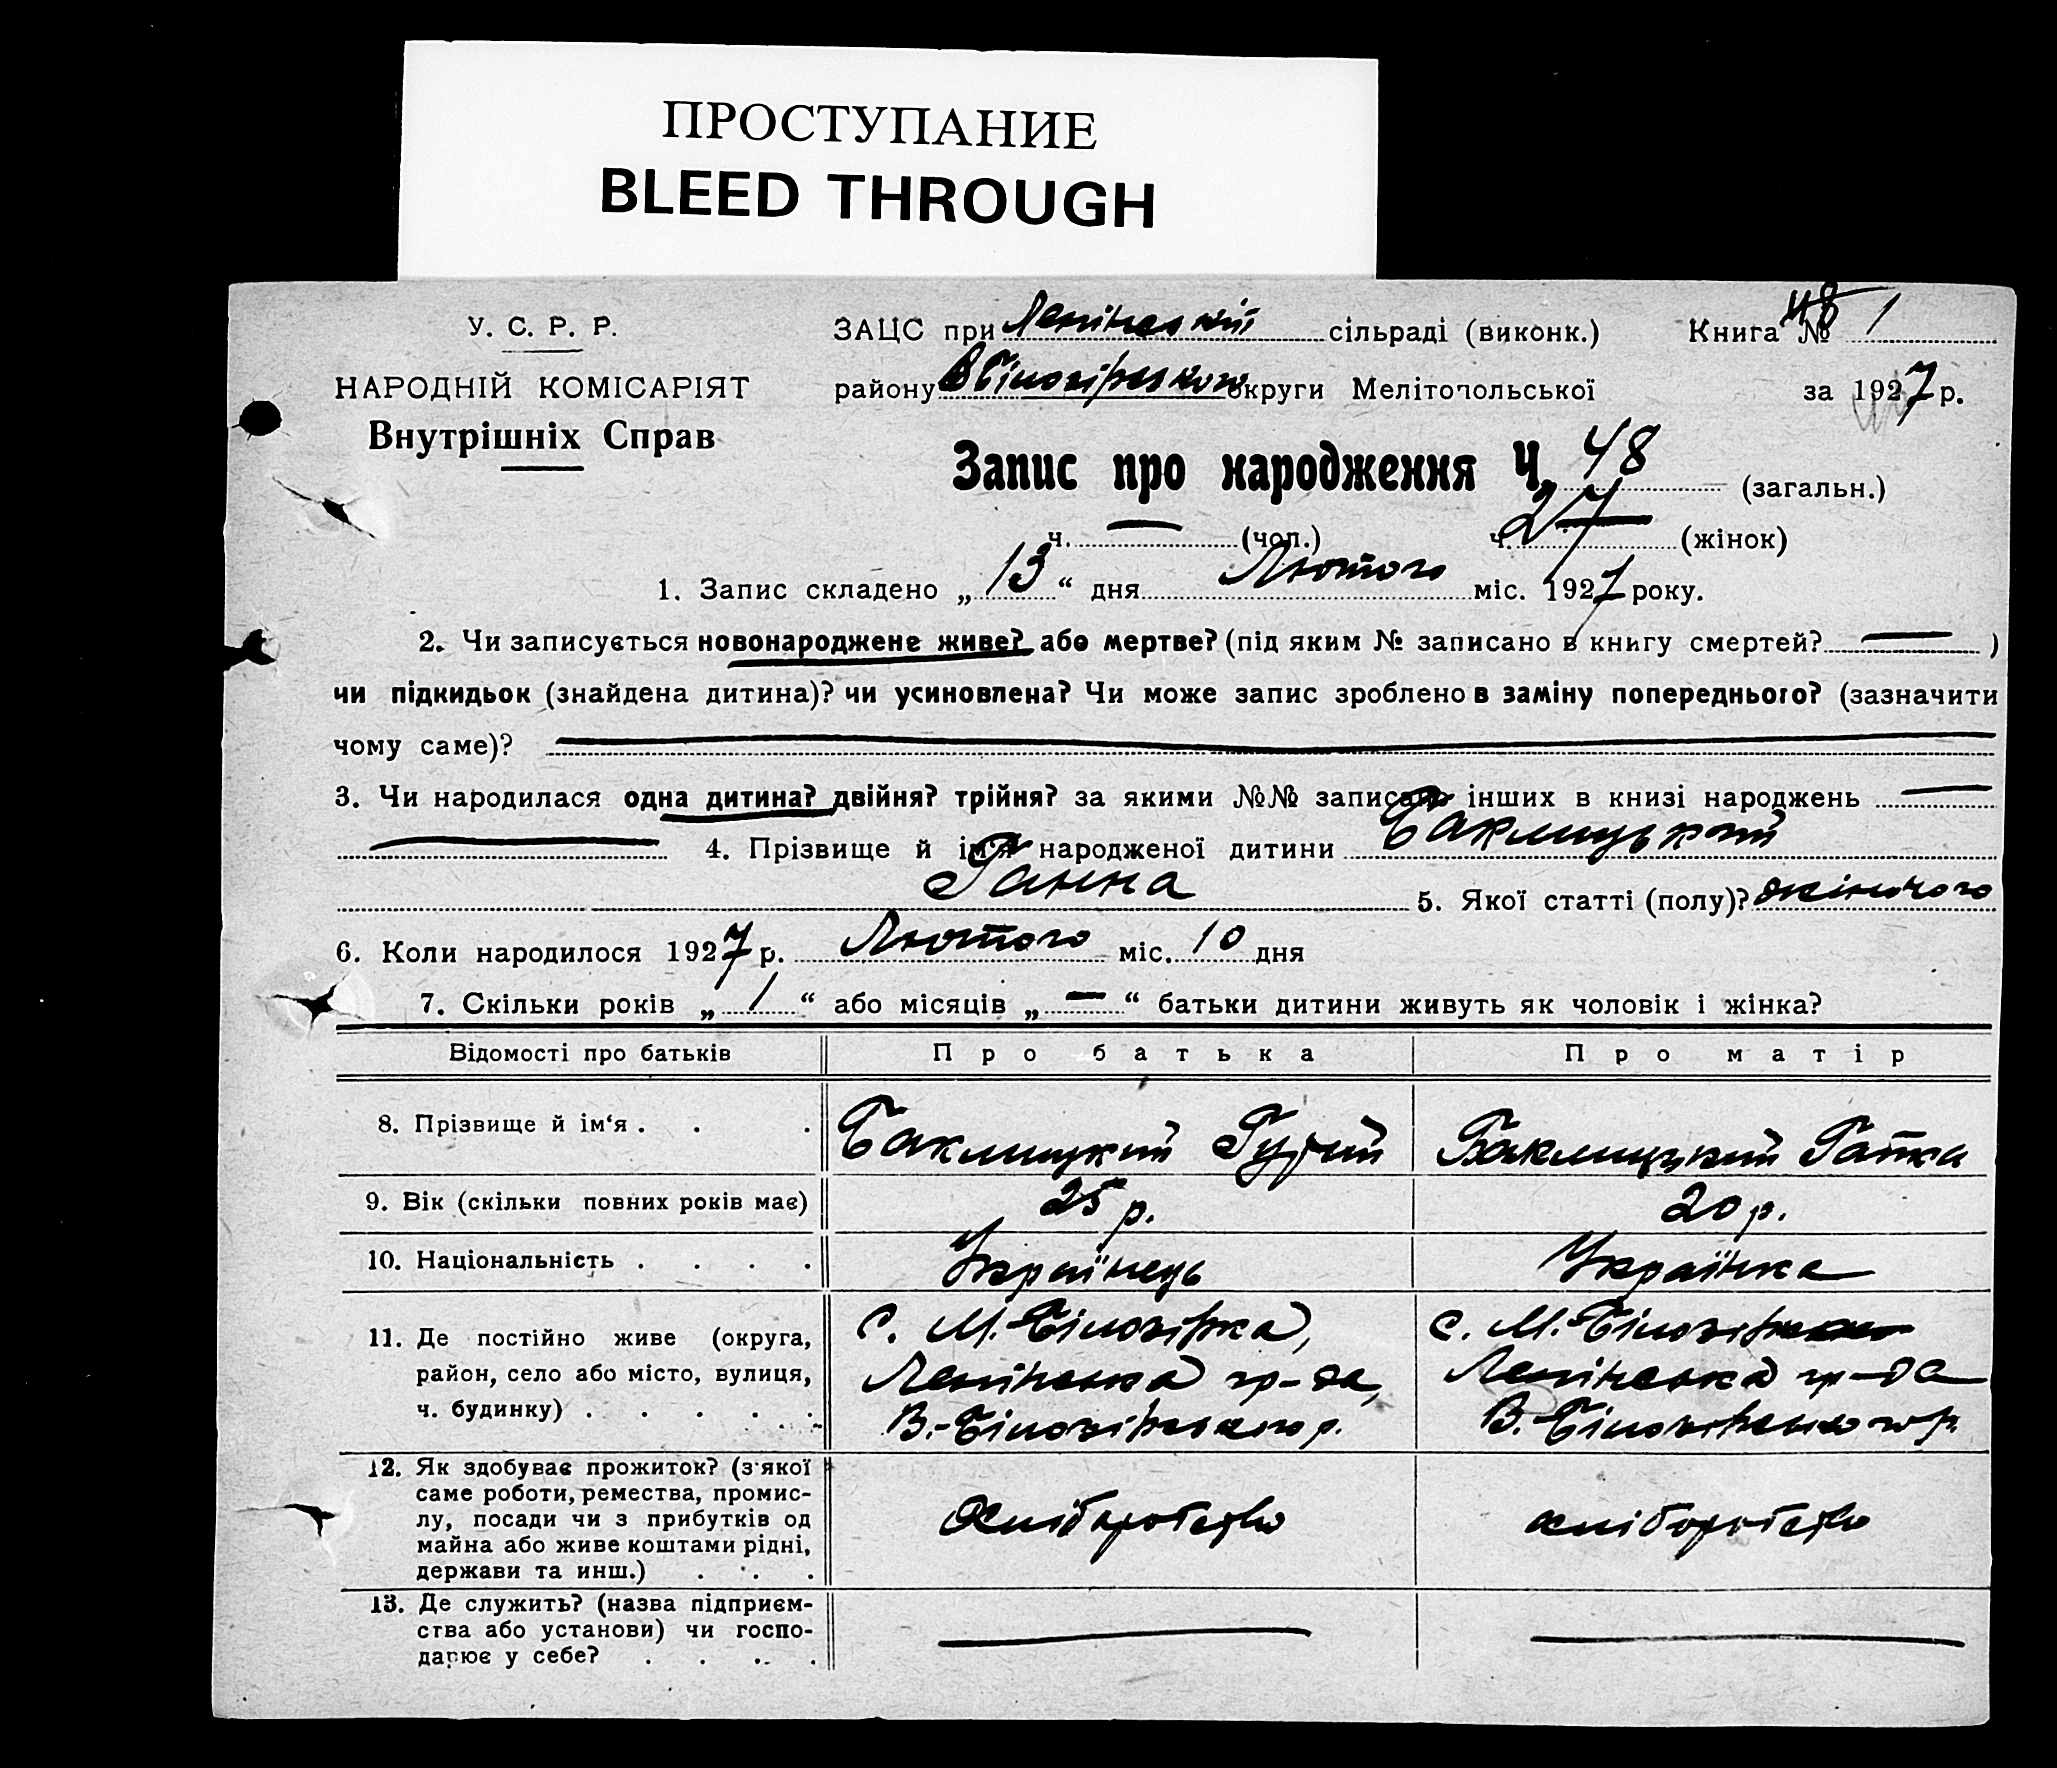 ПРОСТУПАНИЕ
BLEED THROUGH
У. С. Р. Р.
НАРОДНІЙ КОМІСАРІЯТ
Внутрішніх Справ
ЗАЦС при Ленінській сільраді (виконк.) Книга № 48 1
району В Білозірського округи Мелітопольської за 1927 р.
Запис про народження Ч. 48 (загальн.)
ч. — (чол.) ч. 27 (жінок)
1. Запис складено „ 13 “ дня Лютого міс. 1927 року.
2. Чи записується новонароджене живе? або мертве? (під яким № записано в книгу смертей? — )
чи підкидьок (знайдена дитина)? чи усиновлена? Чи може запис зроблено в заміну попереднього? (зазначити
чому саме)?
3. Чи народилася одна дитина? двійня? трійня? за якими №№ записано інших в книзі народжень —
— 4. Прізвище й ім'я народженої дитини Баклицький
Ганна 5. Якої статті (полу)? жіночого
6. Коли народилося 1927 р. Лютого міс. 10 дня
7. Скільки років „ 1 “ або місяців „ — “ батьки дитини живуть як чоловік і жінка?
Відомості про батьків Про батька Про матір
8. Прізвище й ім‘я . . . Баклицкий Гурій Баклицький Гапка
9. Вік (скільки повних років має) 25 р. 20 р.
10. Національність . . . . Українець Українка
11. Де постійно живе (округа,
район, село або місто, вулиця,
ч. будинку) . . . . .
С. М. Білозірка,
Ленінська гр-да,
В.-Білозірського р.
С. М. Білозірка
Ленінська гр-да
В. Білозірського р.
12. Як здобуває прожиток? (з якої
саме роботи, ремества, промис-
лу, посади чи з прибутків од
майна або живе коштами рідні,
держави та инш.) . . .
Хліборобство
хліборобство
13. Де служить? (назва підприєм-
ства або установи) чи госпо-
дарює у себе? . . . .